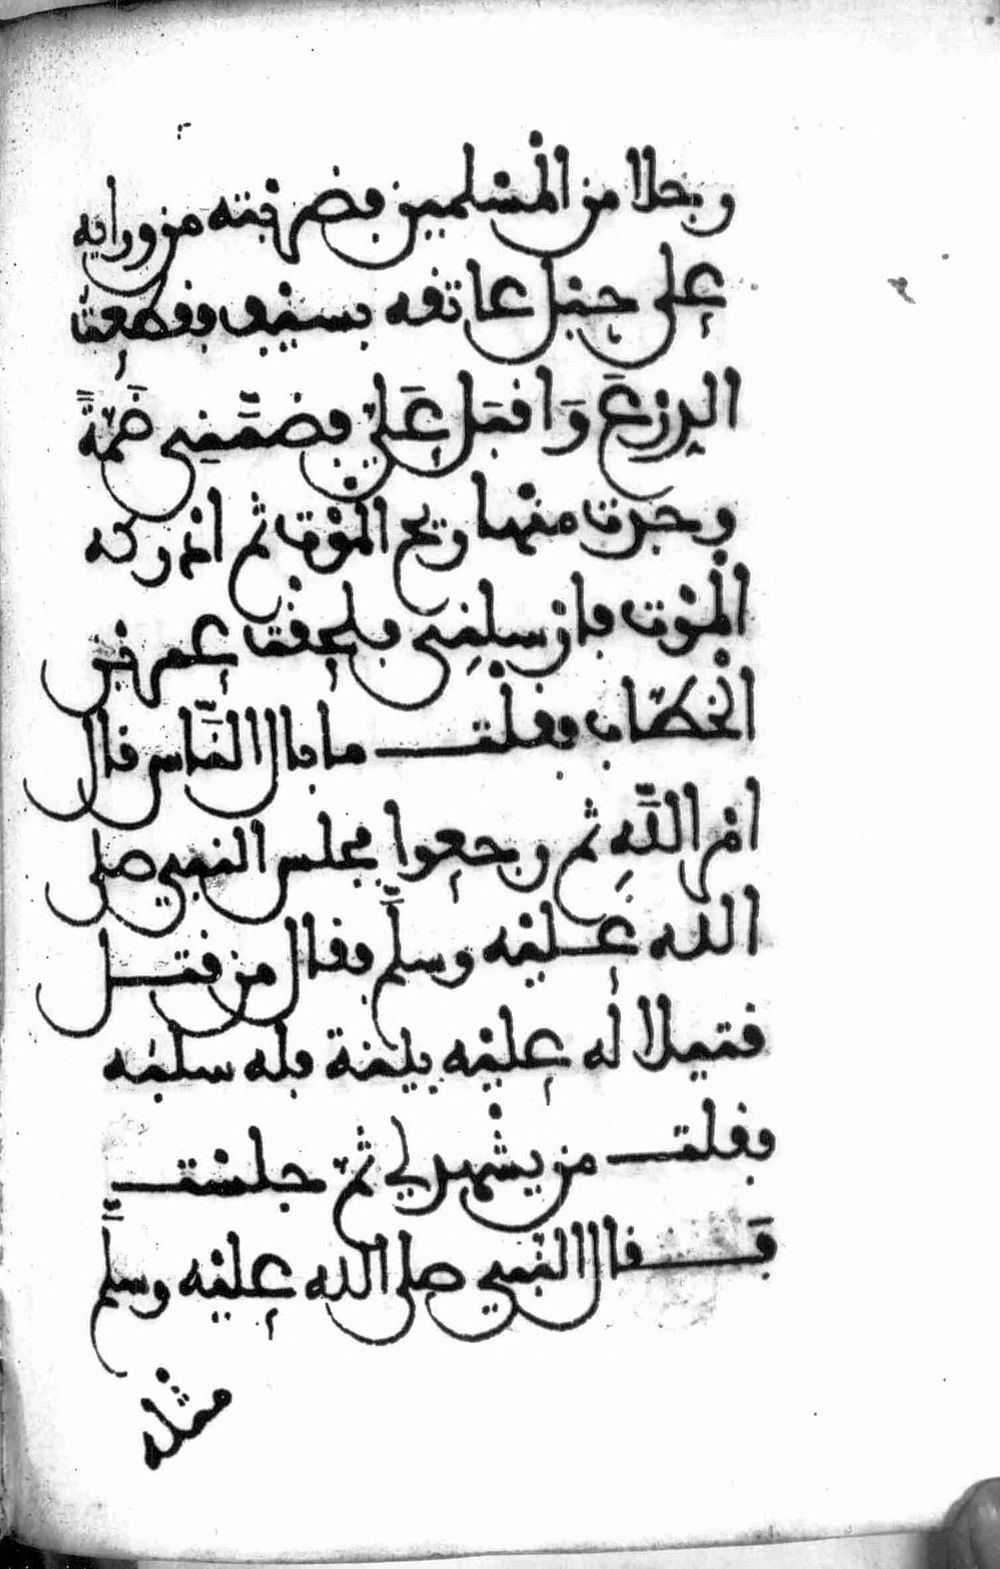 رجلا من المسلمين فضربته من ورايه
على حبل عاتقه بسيف فقطعت
الدِرْعَ وَاقبَل عَلَيّ فضمَّنِي ضَمّةً
وجدت منها ريح الموْت ثم ادركه
الموْت فارْسلنِي فلحقت عمر بن
الخطّاب فقلت ما بال النَّاس قال
امر اللَّهِ ثم رجعوا فجلس النبي صلى
الله عَليْه وسلَّم فقال من قتل
قتيلا له عليْه بينة فله سلبه
فقلت من يشْهد لي ثمّ جلسْت
فَقال النّبي صلى الله عليْه وسلَّم
مثله